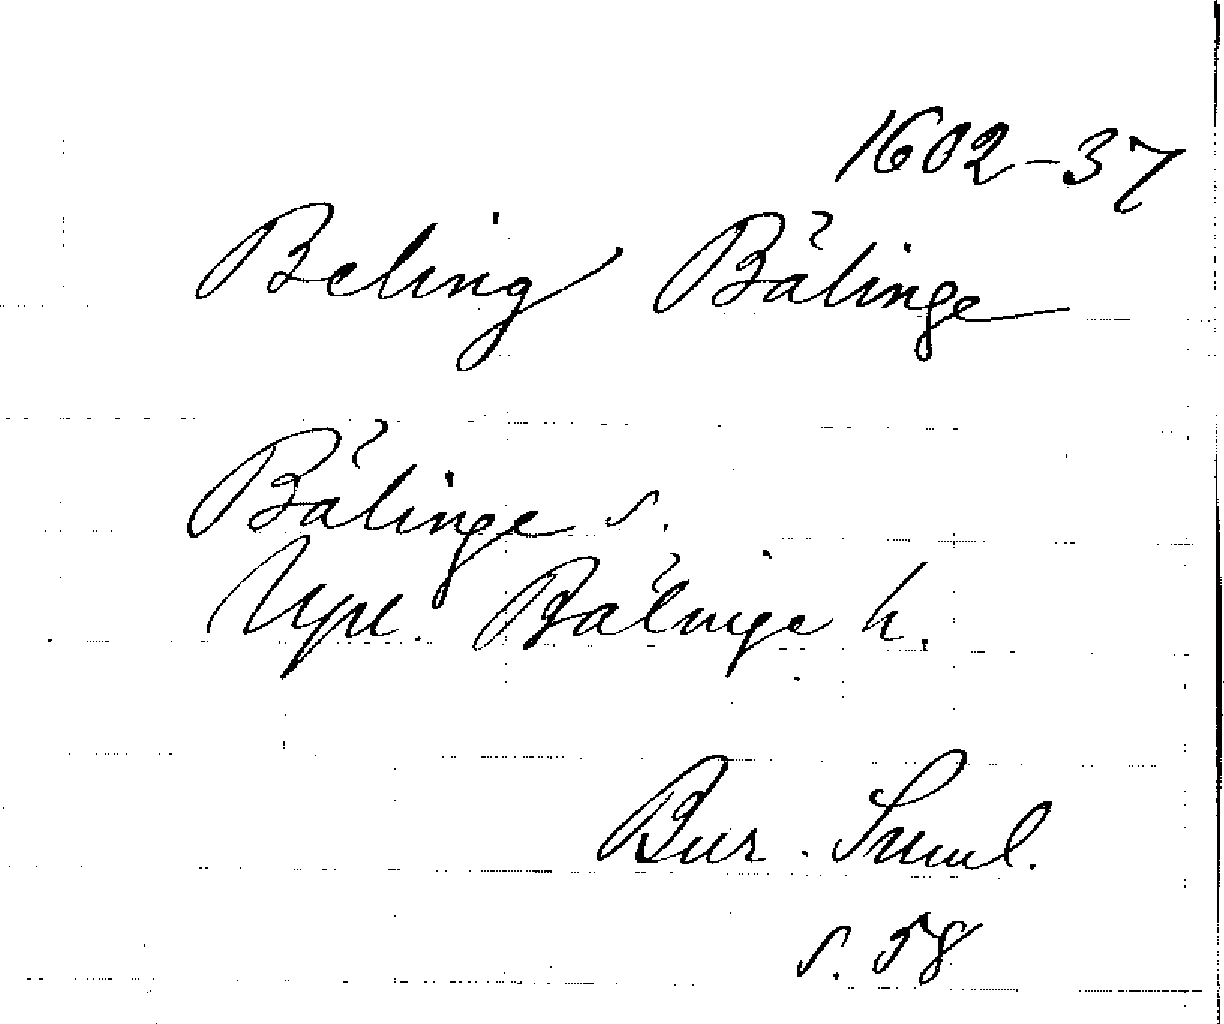 1602-37
Beling Bälinge
Bälinge s.
Upl. Bälinge h.
Bur. Suml.
s. 58